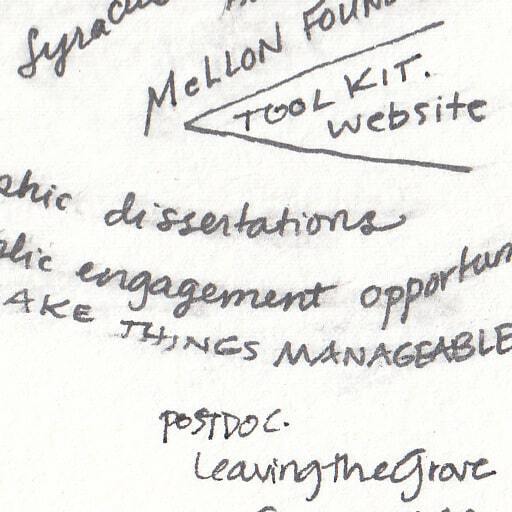 Syrac
MELLON FOUN
TOOLKIT.
website
phic dissertations
blic engagement opportun
AKE THINGS MANAGEABLE
POSTDOC.
LeavingtheGrove